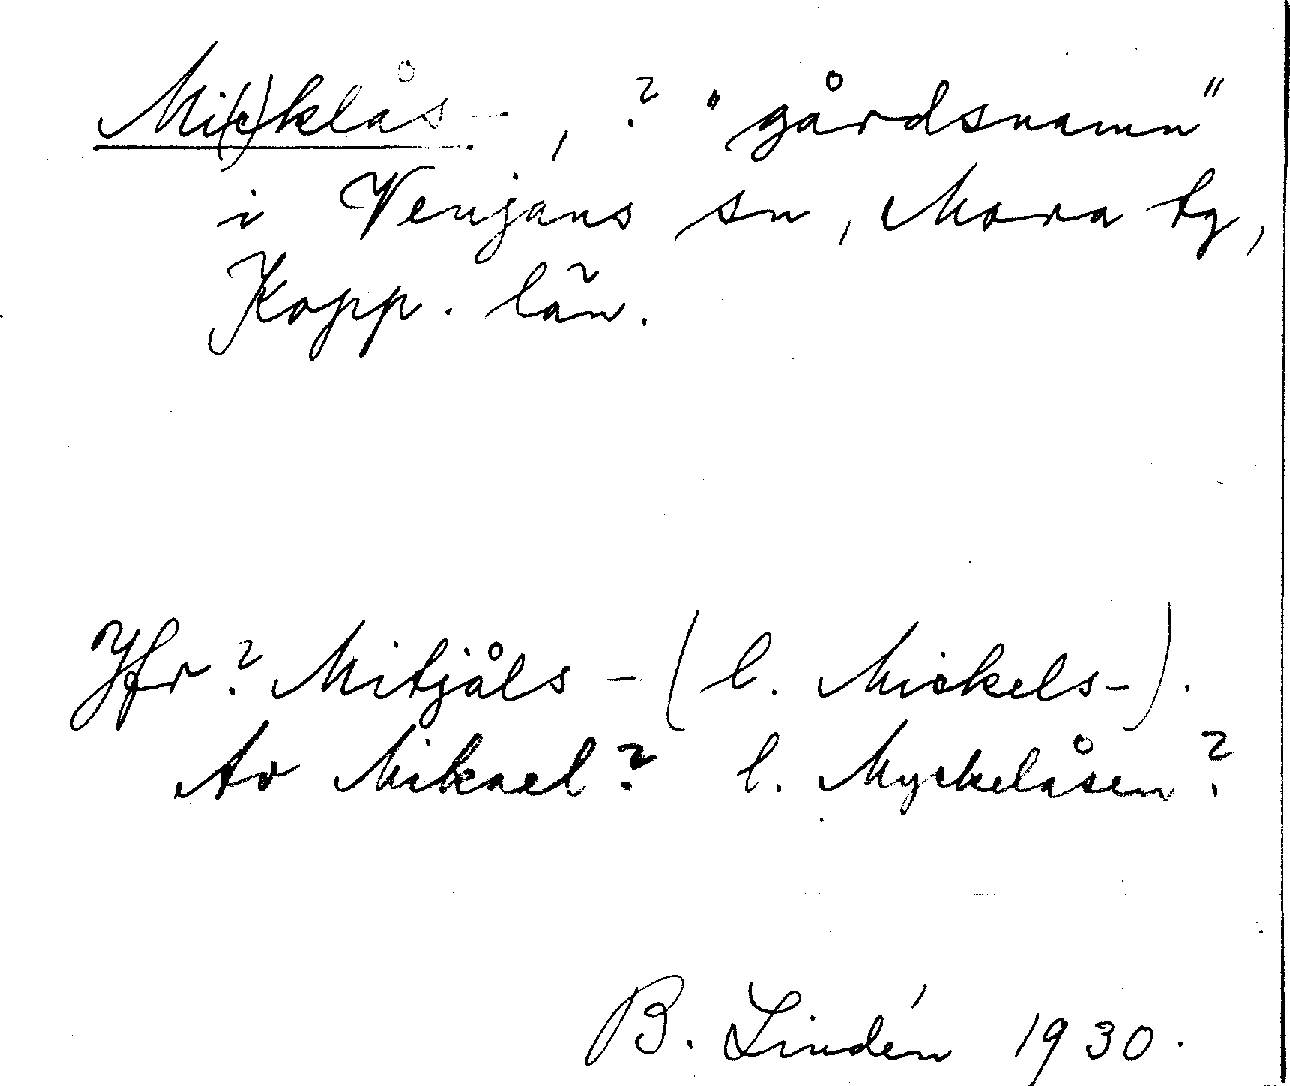 Mi(c)klås- , ? "gårdsnamn"
i Venjans sn, Mora tg,
Kopp. län.
Jfr? Mitjåls - (l. Mickels-).
Av Mikael? l. Myckelåsen?
B. Lindén 1930.